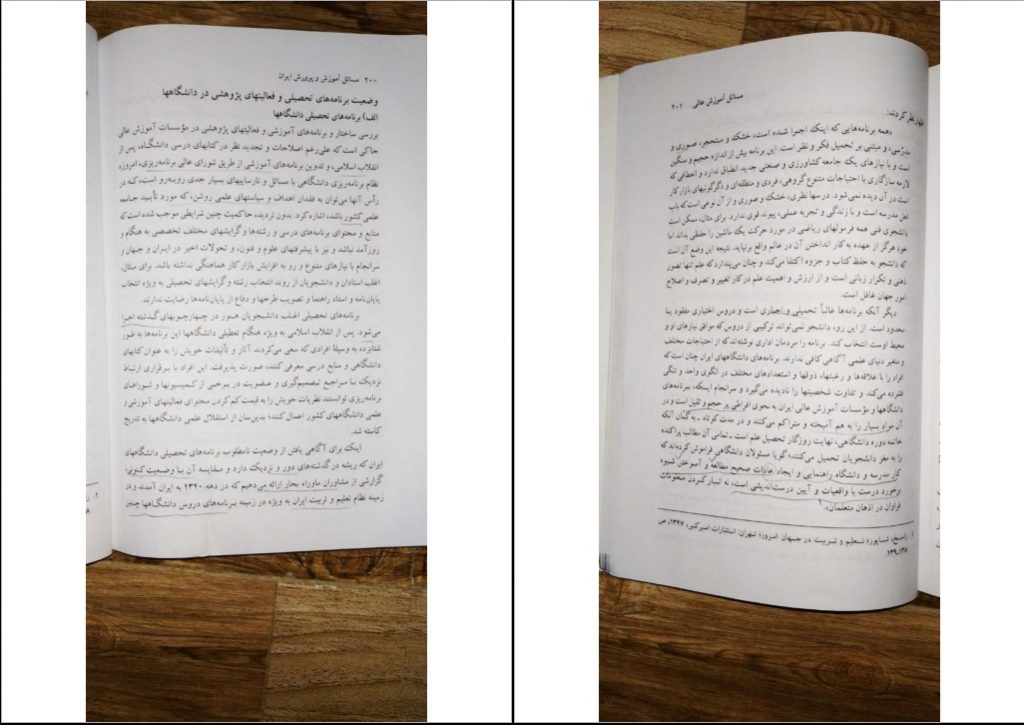 ۲۰۰ مسائل آموزش و پرورش ایران
وضعیت برنامه‌های تحصیلی و فعالیتهای پژوهشی در دانشگاهها
الف) برنامه‌های تحصیلی دانشگاهها
بررسی ساختار و برنامه‌های آموزشی و فعالیتهای پژوهشی در مؤسسات آموزش عالی
حاکی است که علی‌رغم اصلاحات و تجدید نظر در کتابهای درسی دانشگاه، پس از
انقلاب اسلامی، و تدوین برنامه‌های آموزشی از طریق شورای عالی برنامه‌ریزی، امروزه
نظام برنامه‌ریزی دانشگاهی با مسائل و نارساییهای بسیار جدی روبه‌رو است، که در
رأس آنها می‌توان به فقدان اهداف و سیاستهای علمی روشن، که مورد تأیید جامعه
علمی کشور باشد، اشاره کرد. بدون تردید، حاکمیت چنین شرایطی موجب شده است که
منابع و محتوای برنامه‌های درسی و رشته‌ها و گرایشهای مختلف تخصصی به هنگام و
روزآمد نباشد و نیز با پیشرفتهای علوم و فنون، و تحولات اخیر در ایران و جهان و
سرانجام با نیازهای متنوع و رو به افزایش بازار کار هماهنگی نداشته باشد. برای مثال،
اغلب استادان و دانشجویان از روند انتخاب رشته و گرایشهای تحصیلی به ویژه انتخاب
پایان‌نامه و استاد راهنما و تصویب طرحها و دفاع از پایان‌نامه‌ها رضایت ندارند.
برنامه‌های تحصیلی اغلب دانشجویان هنوز در چهارچوبهای گذشته اجرا
می‌شود. پس از انقلاب اسلامی به ویژه هنگام تعطیلی دانشگاهها این برنامه‌ها به طور
شتابزده به وسیلهٔ افرادی که سعی می‌کردند آثار و تألیفات خویش را به عنوان کتابهای
دانشگاهی و منابع درسی معرفی کنند، صورت پذیرفت. این افراد با برقراری ارتباط
نزدیک با مراجع تصمیم‌گیری و عضویت در برخی از کمیسیونها و شوراهای
برنامه‌ریزی توانستند نظریات خویش را به قیمت کم کردن محتوای فعالیتهای آموزشی و
علمی دانشگاههای کشور اعمال کنند؛ بدین‌سان از استقلال علمی دانشگاهها به تدریج
کاسته شد.
اینک برای آگاهی یافتن از وضعیت نامطلوب برنامه‌های تحصیلی دانشگاههای
ایران که ریشه در گذشته‌های دور و نزدیک دارد و مقایسه آن با وضعیت کنونی
گزارشی از مشاوران ماوراء بحار ارائه می‌دهیم که در دهه ۱۳۴۰ به ایران آمدند و در
زمینه نظام تعلیم و تربیت ایران به ویژه در زمینه برنامه‌های دروس دانشگاهها چنین
مسائل آموزش عالی ۲۰۱
اظهار نظر کردند:
«همه برنامه‌هایی که اینک اجرا شده است، خشک و متحجر، صوری و
مدرسی، و مبتنی بر تحمیل فکر و نظر است. این برنامه بیش از اندازه حجیم و سنگین
است و با نیازهای یک جامعه کشاورزی و صنعتی جدید انطباق ندارد و انعطافی که
لازمه سازگاری با احتیاجات متنوع گروهی، فردی و منطقه‌ای و دگرگونیهای بازار کار
است در آن دیده نمی‌شود. درسها نظری، خشک و صوری و از آن نوعی است که باب
اهل مدرسه است و با زندگی و تجربه عملی، پیوند قوی ندارد. برای مثال، ممکن است
دانشجوی فنی همه فرمولهای ریاضی در مورد حرکت یک ماشین را حفظی بداند اما
خود هرگز از عهده به کار انداختن آن در عالم واقع برنیاید. نتیجه این وضع آن است
که دانشجو به حفظ کتاب و جزوه اکتفا می‌کند و چنان می‌پندارد که علم تنها تصور
ذهنی و تکرار زبانی است و از ارزش و اهمیت علم در کار تغییر و تصرف و اصلاح
امور جهان غافل است.
دیگر آنکه برنامه‌ها غالباً تحمیلی و اجباری است و دروس اختیاری مفقود یا
محدود است. از این رو، دانشجو نمی‌تواند ترکیبی از دروس که موافق نیازهای او و
محیط اوست انتخاب کند. برنامه را مردمان اداری نوشته‌اند که از احتیاجات مختلف
و متغیر دنیای علمی آگاهی کافی ندارند. برنامه‌های دانشگاههای ایران چنان است که
افراد را با علاقه‌ها و رغبتها، ذوقها و استعدادهای مختلف در الگوی واحد و تنگی
فشرده می‌کند و تفاوت شخصیتها را نادیده می‌گیرد و سرانجام اینکه، برنامه‌های
دانشگاهها و مؤسسات آموزش عالی ایران به نحوی افراطی پر حجم و ثقیل است و در
آن مواد بسیار را به هم آمیخته و متراکم می‌کنند و در مدت کوتاه ـ به گمان آنکه
خاتمه دوره دانشگاهی، نهایت روزگار تحصیل علم است ـ تمامی آن مطالب پراکنده
را به مغز دانشجویان تحمیل می‌کنند؛ گویا مسئولان دانشگاهی فراموش کرده‌اند که
کار مدرسه و دانشگاه راهنمایی و ایجاد عادات صحیح مطالعه و آموختن شیوه
برخورد درست با واقعیات و آیین درست‌اندیشی است، نه انبار کردن معلومات
فراوان در اذهان متعلمان».۱
۱. راسخ، شاپور؛ تعلیم و تربیت در جهان امروز؛ تهران: انتشارات امیرکبیر، ۱۳۴۷، ص
۱۳۸ـ۱۳۹.